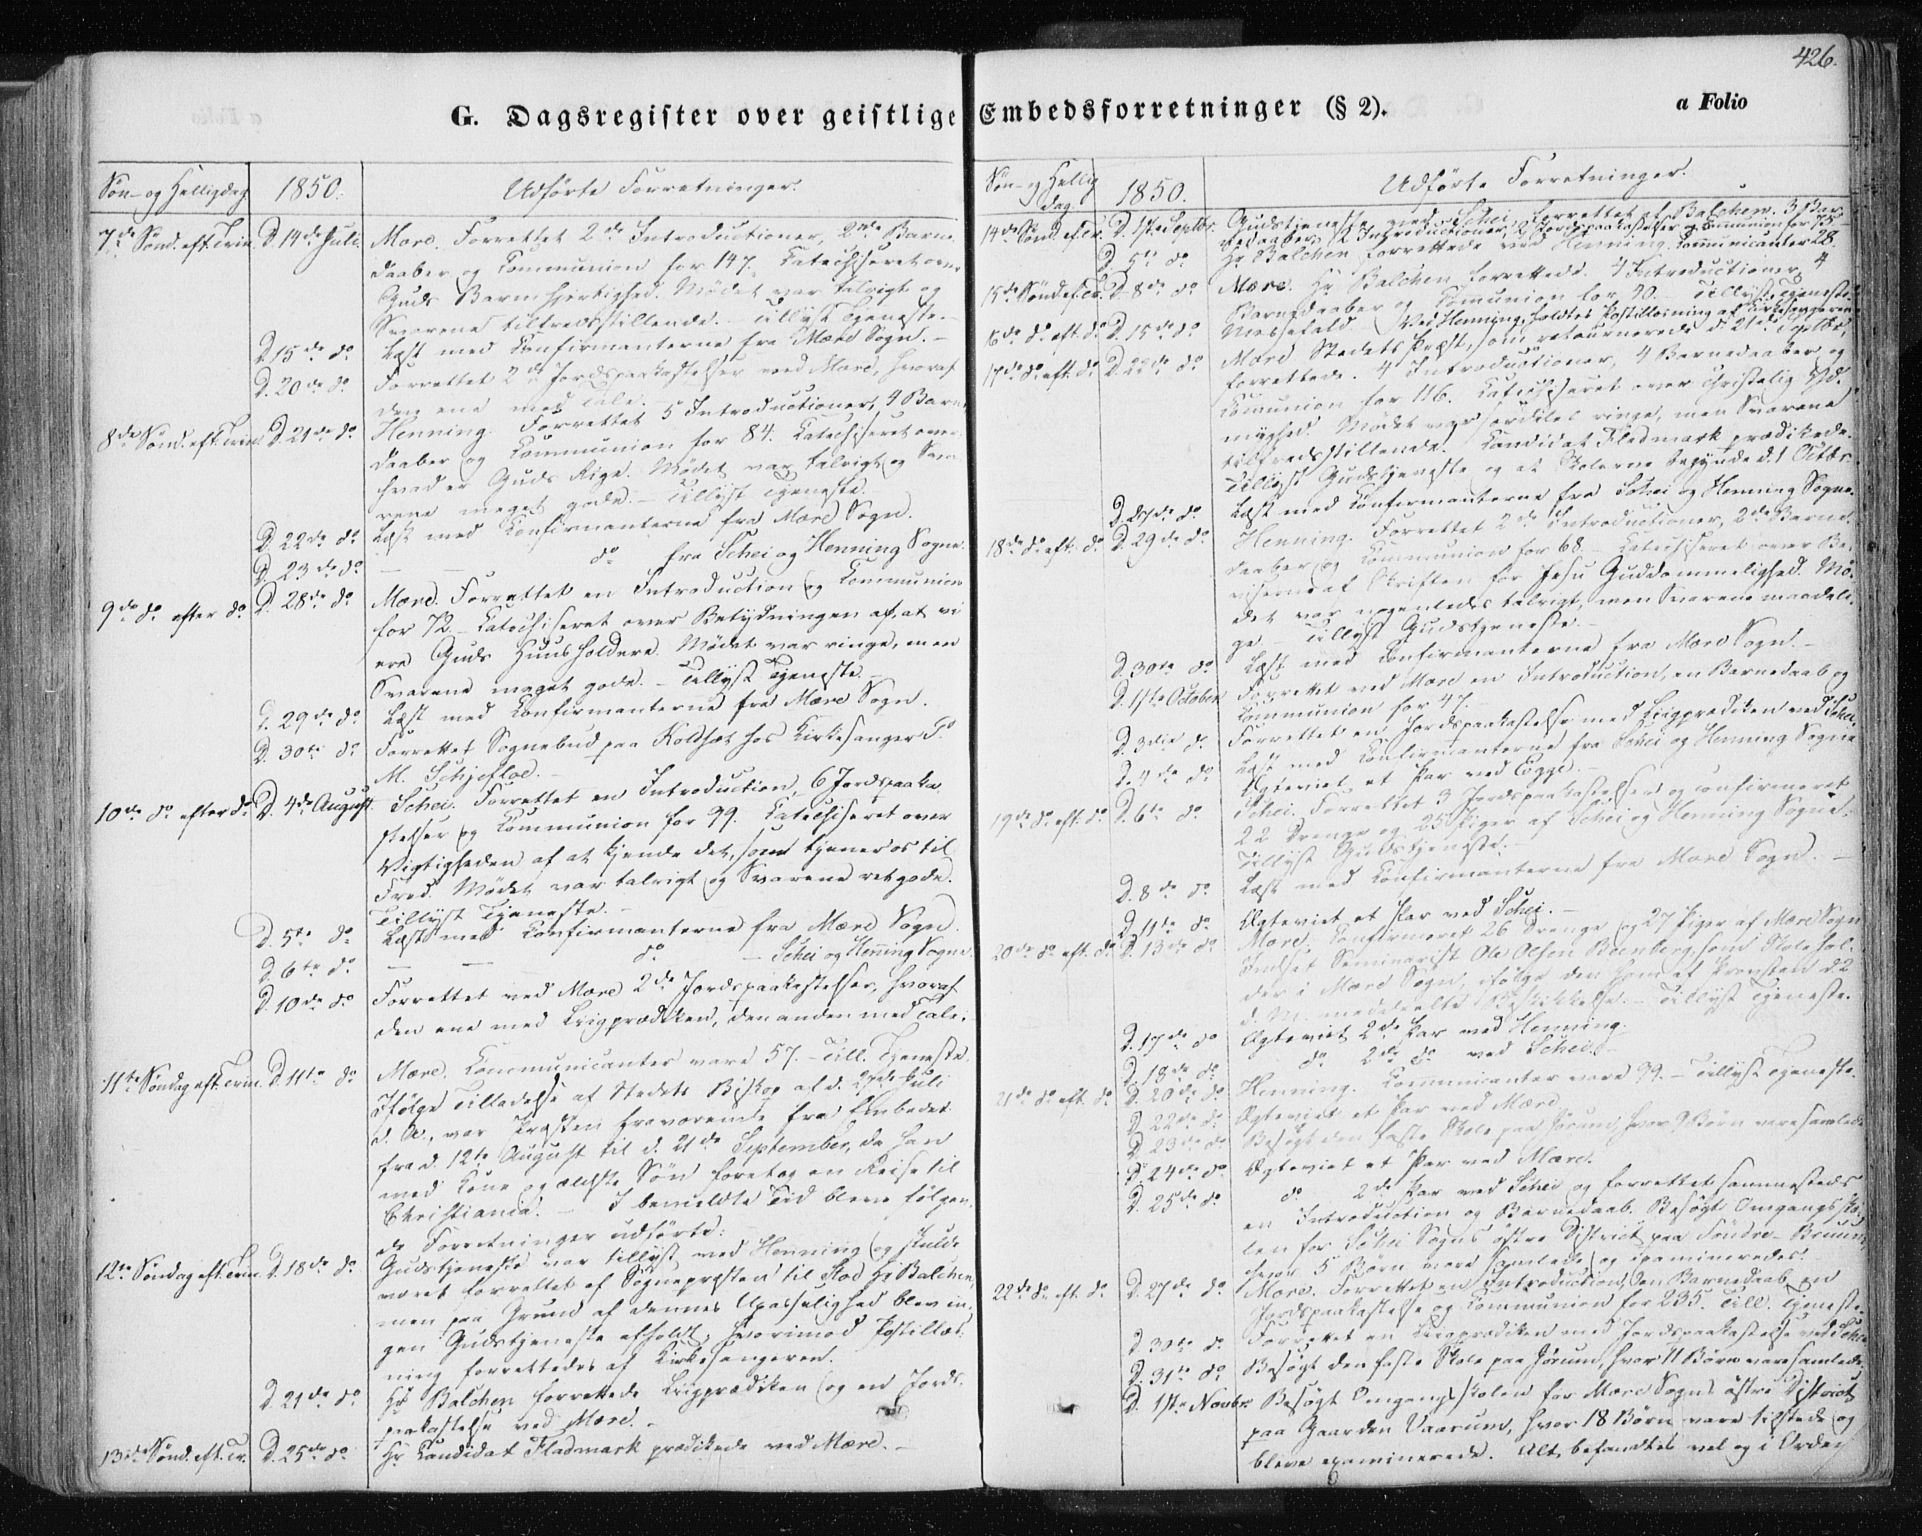 426.
G. Dagsregister over geistlige Embedsforretninger (§ 2).
a Folio
Søn- og Helligdag. 1850. Udførte Forretninger.
7de Sønd. eft. Trin. D. 14de Juli. Mære. Forrettet 2de Introductioner, 2de Barne-
daaber og Communion for 147. Catechiseret over
Guds Barmhjertighed. Mødet var talrigt og
Svarene tilfredsstillende. - Tillyst Tjeneste. -
D. 15de do Læst med Confirmanterne fra Mære Sogn. -
D. 20de do Forrettet 2de Jordspaakastelser ved Mære, hvoraf
den ene med Tale.
8de Sønd. eft. Trin. D. 21de do Henning. Forrettet 5 Introductioner, 4 Barne-
daaber og Communion for 84. Catechiseret over
hvad er Guds Rige. Mødet var talrigt og Sva-
rene meget gode. - Tillyst Tjeneste.
D. 22de do Læst med Confirmanterne fra Mære Sogn.
D. 23de do — — do fra Schei og Henning Sogne.
9de do efter do D. 28de do Mære. Forrettet en Introduction og Communion
for 72. - Catechiseret over Betydningen af, at vi
ere Guds Huusholdere. Mødet var ringe, men
Svarene meget gode. - Tillyst Tjeneste. -
D. 29de do Læst med Confirmanterne fra Mære Sogn.
D. 30te do Forrettet Sognebud paa Koldset hos Kirkesanger P.
M. Schjefloe. -
10de do efter do D. 4de August. Schei. Forrettet en Introduction, 6 Jordspaaka-
stelser og Communion for 99. Catechiseret over
Vigtigheden af at kjende det, som tjener os til
Fred. Mødet var talrigt og Svarene ret gode.
Tillyst Tjeneste. -
D. 5te do Læst med Confirmanterne fra Mære Sogn.
D. 6te do — — do — Schei og Henning Sogne.
D. 10de do Forrettet ved Mære 2de Jordspaakastelser, hvoraf
den ene med Liigprædiken, den anden med Tale.
11te Søndag eft. Trin. D. 11te do Mære. Communicanter vare 57. - Till. Tjeneste.
Ifølge Tilladelse af Stedets Biskop af d. Juli
d. A., var Præsten fraværende fra Embedet
fra d. 12te August til d. 21de September, da han
med Kone og ældste Søn foretog en Reise til
Christiania. - I bemeldte Tid bleve følgen-
de Forretninger udførte:
12te Søndag eft. Trin. D. 18de do Gudstjeneste var tillyst ved Henning og skulde
været forrettet af Sognepræsten til Stod Hr Balchen,
men paa Grund af dennes Upasselighed blev in-
gen Gudstjeneste afholdt, hvorimod Postillæs-
ning forrettedes af Kirkesangeren.
D. 21de do Hr Balchen forrettede Liigprædiken og en Jords-
paakastelse ved Mære. -
13de Sønd. eft. Tr. D. 25de do Hr Candidat Fladmark prædikede ved Mære. -
Søn- og Hellig
dag. 1850. Udførte Forretninger.
14de Sønd. ef. Tr. D. 1ste Septbr. Gudstjeneste ved Schei, forrettet af Balchen. 3 Bar-
nedaaber, 2 Introductioner, 2 Jordspaakastelser og Communion for 75.
D. 5te do Hr Balchen forrettede ved Henning. Communicanter 28.
15de Sønd. ef. Tr. D. 8de do Mære. Hr Balchen forrettede. 4 Introductioner, 4
Barnedaaber og Communion for 90. - Tillyst Tjeneste.
16de do eft. do D. 15de do Messefald. (Ved Henning holdtes Postillæsning af Kirkesangeren.
17de do eft. do D. 22de do Mære. Stedets Præst, som retournerede d. 21de Septbr,
forrettede. 4 Introductioner, 4 Barnedaaber og
Communion for 116. Catechiseret over christelig Yd-
myghed. Mødet var særdeles ringe, men Svarene
tilfredsstillende. Candidat Fladmark prædikede.
Tillyst Gudstjeneste og at Skolerne begynde d. 1 Octbr.
D. 27de do Læst med Confirmanterne fra Schei og Henning Sogne.
18de do eft. do D. 29de do Henning. Forrettet 2de Introductioner, 2de Barne-
daaber og Communion for 68. - Catechiseret over Be-
viserne af Skriften for Jesu Guddommelighed. Mø-
det var nogenledes talrigt, men Svarene maadeli-
ge. - Tillyst Gudstjeneste. -
D. 30te do Læst med Confirmanterne fra Mære Sogn. -
D. 1ste October Forrettet ved Mære en Introduction, en Barnedaab og
Communion for 47. -
D. 3die do Forrettet en Jordspaakastelse med Liigprædiken ved Schei.
D. 4de do Læst med Confirmanterne fra Schei og Henning Sogne
Ægteviet et Par ved Egge. -
19de do eft. do D. 6te do Schei. Forrettet 3 Jordspaakastelser og confirmeret
22 Drenge og 25 Piger af Schei og Henning Sogne.
Tillyst Gudstjeneste. -
D. 8de do Læst med Confirmanterne fra Mære Sogn. -
D. 11te do Ægteviet et Par ved Schei. -
20de do eft. do D. 13de do Mære. Confirmeret 26 Drenge og 27 Piger af Mære Sogn
Indsat Seminarist Ole Olsen som Skolehol-
der i Mære Sogn, ifølge den ham af Provsten d. 2
d. M. meddeelte Beskikkelse. - Tillyst Tjeneste.
D. 17de do Ægteviet 2de Par ved Henning.
D. 18de do do 2de do ved Schei. -
21de do eft. do D. 20de do Henning. Communicanter vare 99. - Tillyst Tjeneste.
D. 22de do Ægteviet et Par ved Mære.
D. 23de do Besøgt den faste Skole paa Jørum, hvor 9 Børn vare samlede
D. 24de do Ægteviet et Par ved Mære.
D. 25de do do 2de Par ved Schei og forrettet sammesteds
en Introduction og Barnedaab. Besøgt Omgangssko-
len for Schei Sogns østre District paa Søndre Bruum,
hvor 5 Børn vare samlede og examineredes.
22de do eft. do D. 27de do Mære. Forrettet en Introduction, en Barnedaab, en
Jordspaakastelse og Communion for 235. Till. Tjeneste.
D. 30te do Forrettet en Liigprædiken med Jordspaakastelse ved Schei
D. 31te do Besøgt den faste Skole paa Jørum, hvor 11 Børn vare samlede.
D. 1ste Novbr. Besøgt Omgangsskolen for Mære Sogns østre District
paa Gaarden Vaarum, hvor 18 Børn vare tilstede og
bleve examinerede. Alt befandtes vel og i Orden